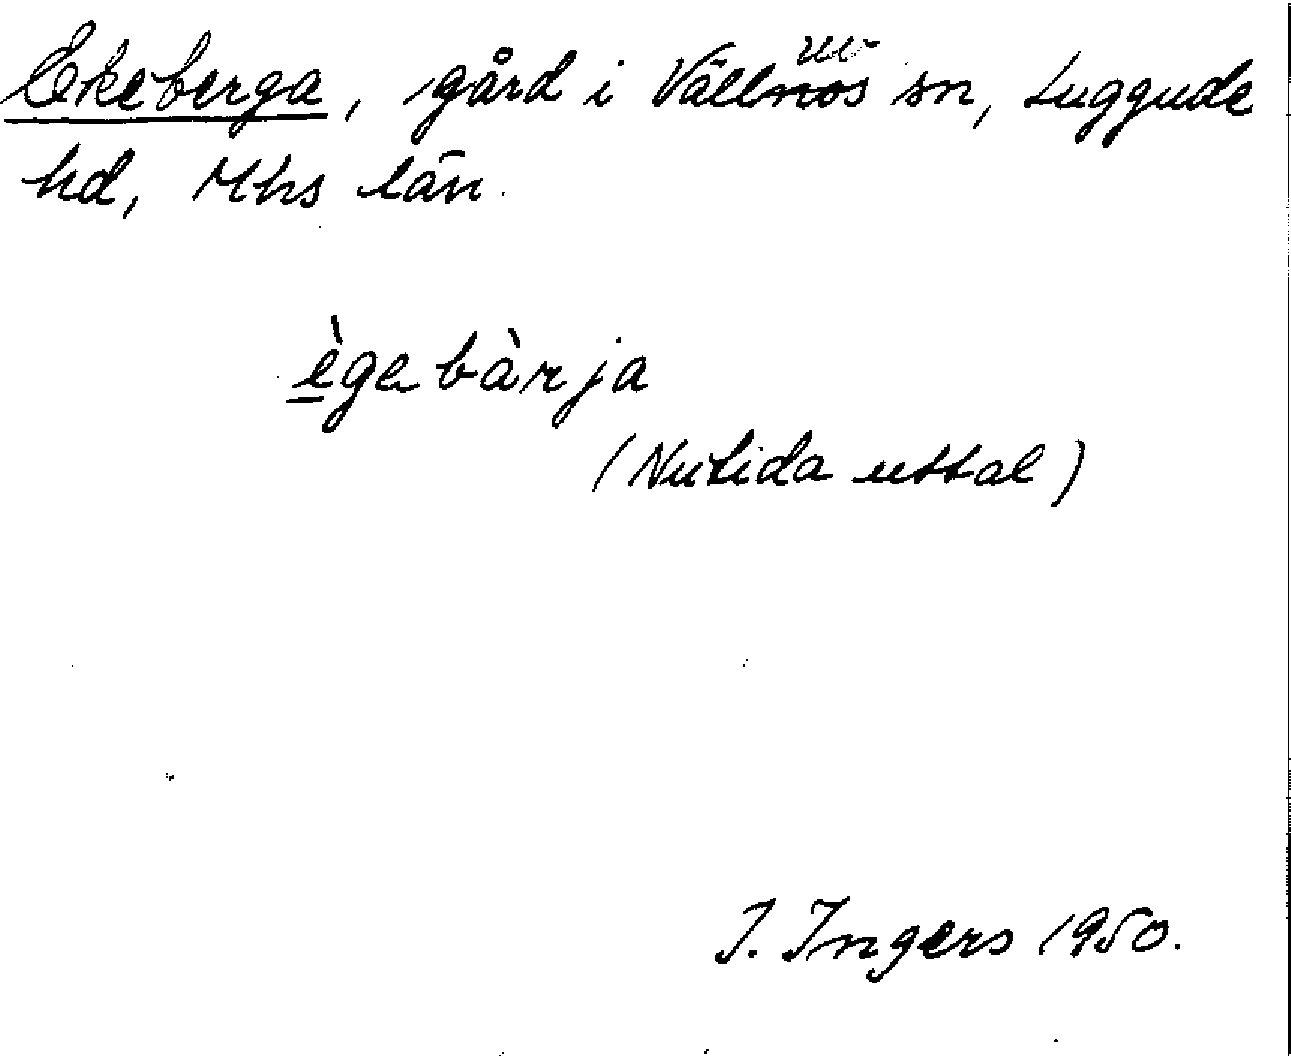 Ekeberga, gård i Välluvs sn, Luggude
hd, Mhs län.
ègebàrja
(Nutida uttal)
I. Ingers 1950.